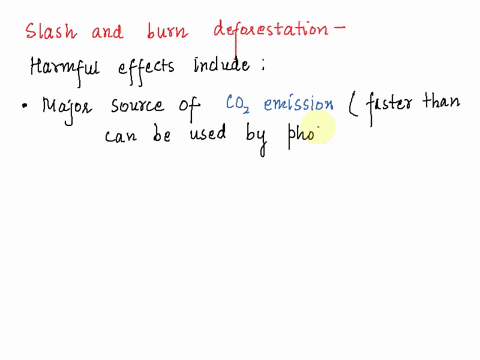 Slash and burn deforestation -
Harmful effects include :
• Major source of CO2 emission ( faster than
can be used by pho